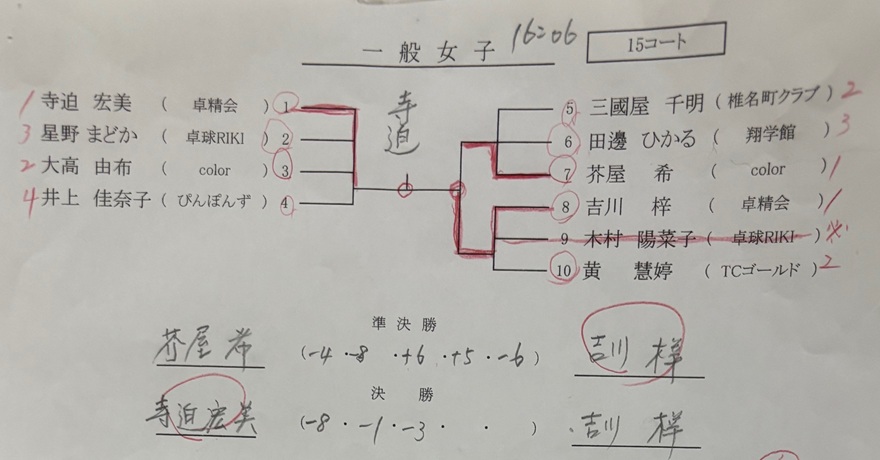 一般女子 16:06 15コート
1 寺迫 宏美 ( 卓精会 ) 1
3 星野 まどか ( 卓球RIKI ) 2
2 大高 由布 ( color ) 3
4 井上 佳奈子 ( ぴんぽんず ) 4
寺迫
5 三國屋 千明 ( 椎名町クラブ ) 2
6 田邊 ひかる ( 翔学館 ) 3
7 芥屋 希 ( color ) 1
8 吉川 梓 ( 卓精会 ) 1
9 木村 陽菜子 ( 卓球RIKI )
10 黄 慧婷 ( TCゴールド ) 2
準決勝
芥屋 希 (-4・-8・+6・+5・-6) 吉川 梓
決勝
寺迫宏美 (-8・-1・-3・・) 吉川 梓